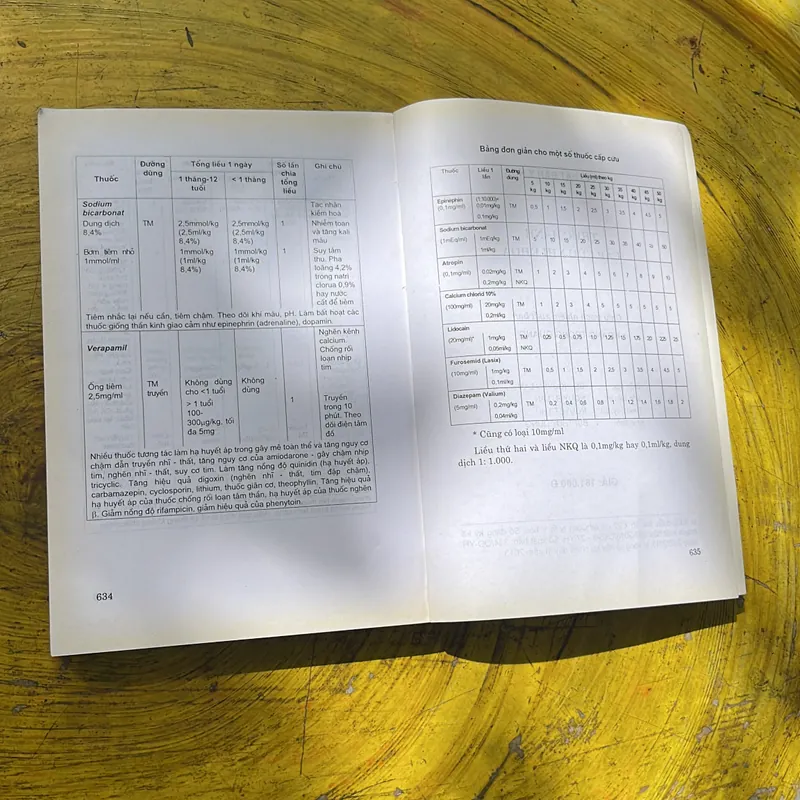 Thuốc Đường dùng Tổng liều 1 ngày Số lần chia tổng liều Ghi chú
1 tháng-12 tuổi < 1 tháng
Sodium bicarbonat
Dung dịch 8,4% TM 2,5mmol/kg (2,5ml/kg 8,4%) 2,5mmol/kg (2,5ml/kg 8,4%) 1 Tác nhân kiềm hoá Nhiễm toan và tăng kali máu
Bơm tiêm nhỏ 1mmol/ml 1mmol/kg (1ml/kg 8,4%) 1mmol/kg (1ml/kg 8,4%) 1 Suy tâm thu. Pha loãng 4,2% trong natri clorua 0,9% hay nước cất để tiêm
Tiêm nhắc lại nếu cần, tiêm chậm. Theo dõi khí máu, pH. Làm bất hoạt các
thuốc giống thần kinh giao cảm như epinephrin (adrenaline), dopamin.
Verapamil Nghẽn kênh calcium. Chống rối loạn nhịp tim.
Ống tiêm 2,5mg/ml TM truyền Không dùng cho <1 tuổi > 1 tuổi 100-300µg/kg, tối đa 5mg Không dùng 1 Truyền trong 10 phút. Theo dõi điện tâm đồ
Nhiều thuốc tương tác làm hạ huyết áp trong gây mê toàn thể và tăng nguy cơ
chậm dẫn truyền nhĩ - thất, tăng nguy cơ của amiodarone - gây chậm nhịp
tim, nghẽn nhĩ - thất, suy cơ tim. Làm tăng nồng độ quinidin (hạ huyết áp),
tricyclic. Tăng hiệu quả digoxin (nghẽn nhĩ - thất, tim đập chậm),
carbamazepin, cyclosporin, lithium, thuốc giãn cơ, theophylin. Tăng hiệu quả
hạ huyết áp của thuốc chống rối loạn tâm thần, hạ huyết áp của thuốc nghẽn
β. Giảm nồng độ rifampicin, giảm hiệu quả của phenytoin.
634
Bảng đơn giản cho một số thuốc cấp cứu
Thuốc Liều 1 lần Đường dùng Liều (ml) theo kg
5 kg 10 kg 15 kg 20 kg 25 kg 30 kg 35 kg 40 kg 45 kg 50 kg
Epinephrin (0,1mg/ml) (1:10.000)* 0,01mg/kg 0,1mg/kg TM 0,5 1 1,5 2 2,5 3 3,5 4 4,5 5
Sodium bicarbonat
(1mEq/ml) 1mEq/kg 1ml/kg TM 5 10 15 20 25 30 35 40 50
Atropin
(0,1mg/ml) 0,02mg/kg 0,2mg/kg TM NKQ 1 2 3 4 5 6 7 8 9 10
Calcium chlorid 10%
(100mg/ml) 20mg/kg 0,2ml/kg TM 1 2 3 4 5 5 5 5 5 5
Lidocain
(20mg/ml)* 1mg/kg 0,05ml/kg TM NKQ 0,25 0,5 0,75 1,0 1,25 1,5 1,75 20 2,25 2,5
Furosemid (Lasix)
(10mg/ml) 1mg/kg 0,1ml/kg TM 0,5 1 1,5 2 2,5 3 3,5 4 4,5 5
Diazepam (Valium)
(5mg/ml) 0,2mg/kg 0,04ml/kg TM 0,2 0,4 0,6 0,8 1 1,2 1,4 1,6 1,8 2
* Cũng có loại 10mg/ml
Liều thứ hai và liều NKQ là 0,1mg/kg hay 0,1ml/kg, dung
dịch 1: 1.000.
635